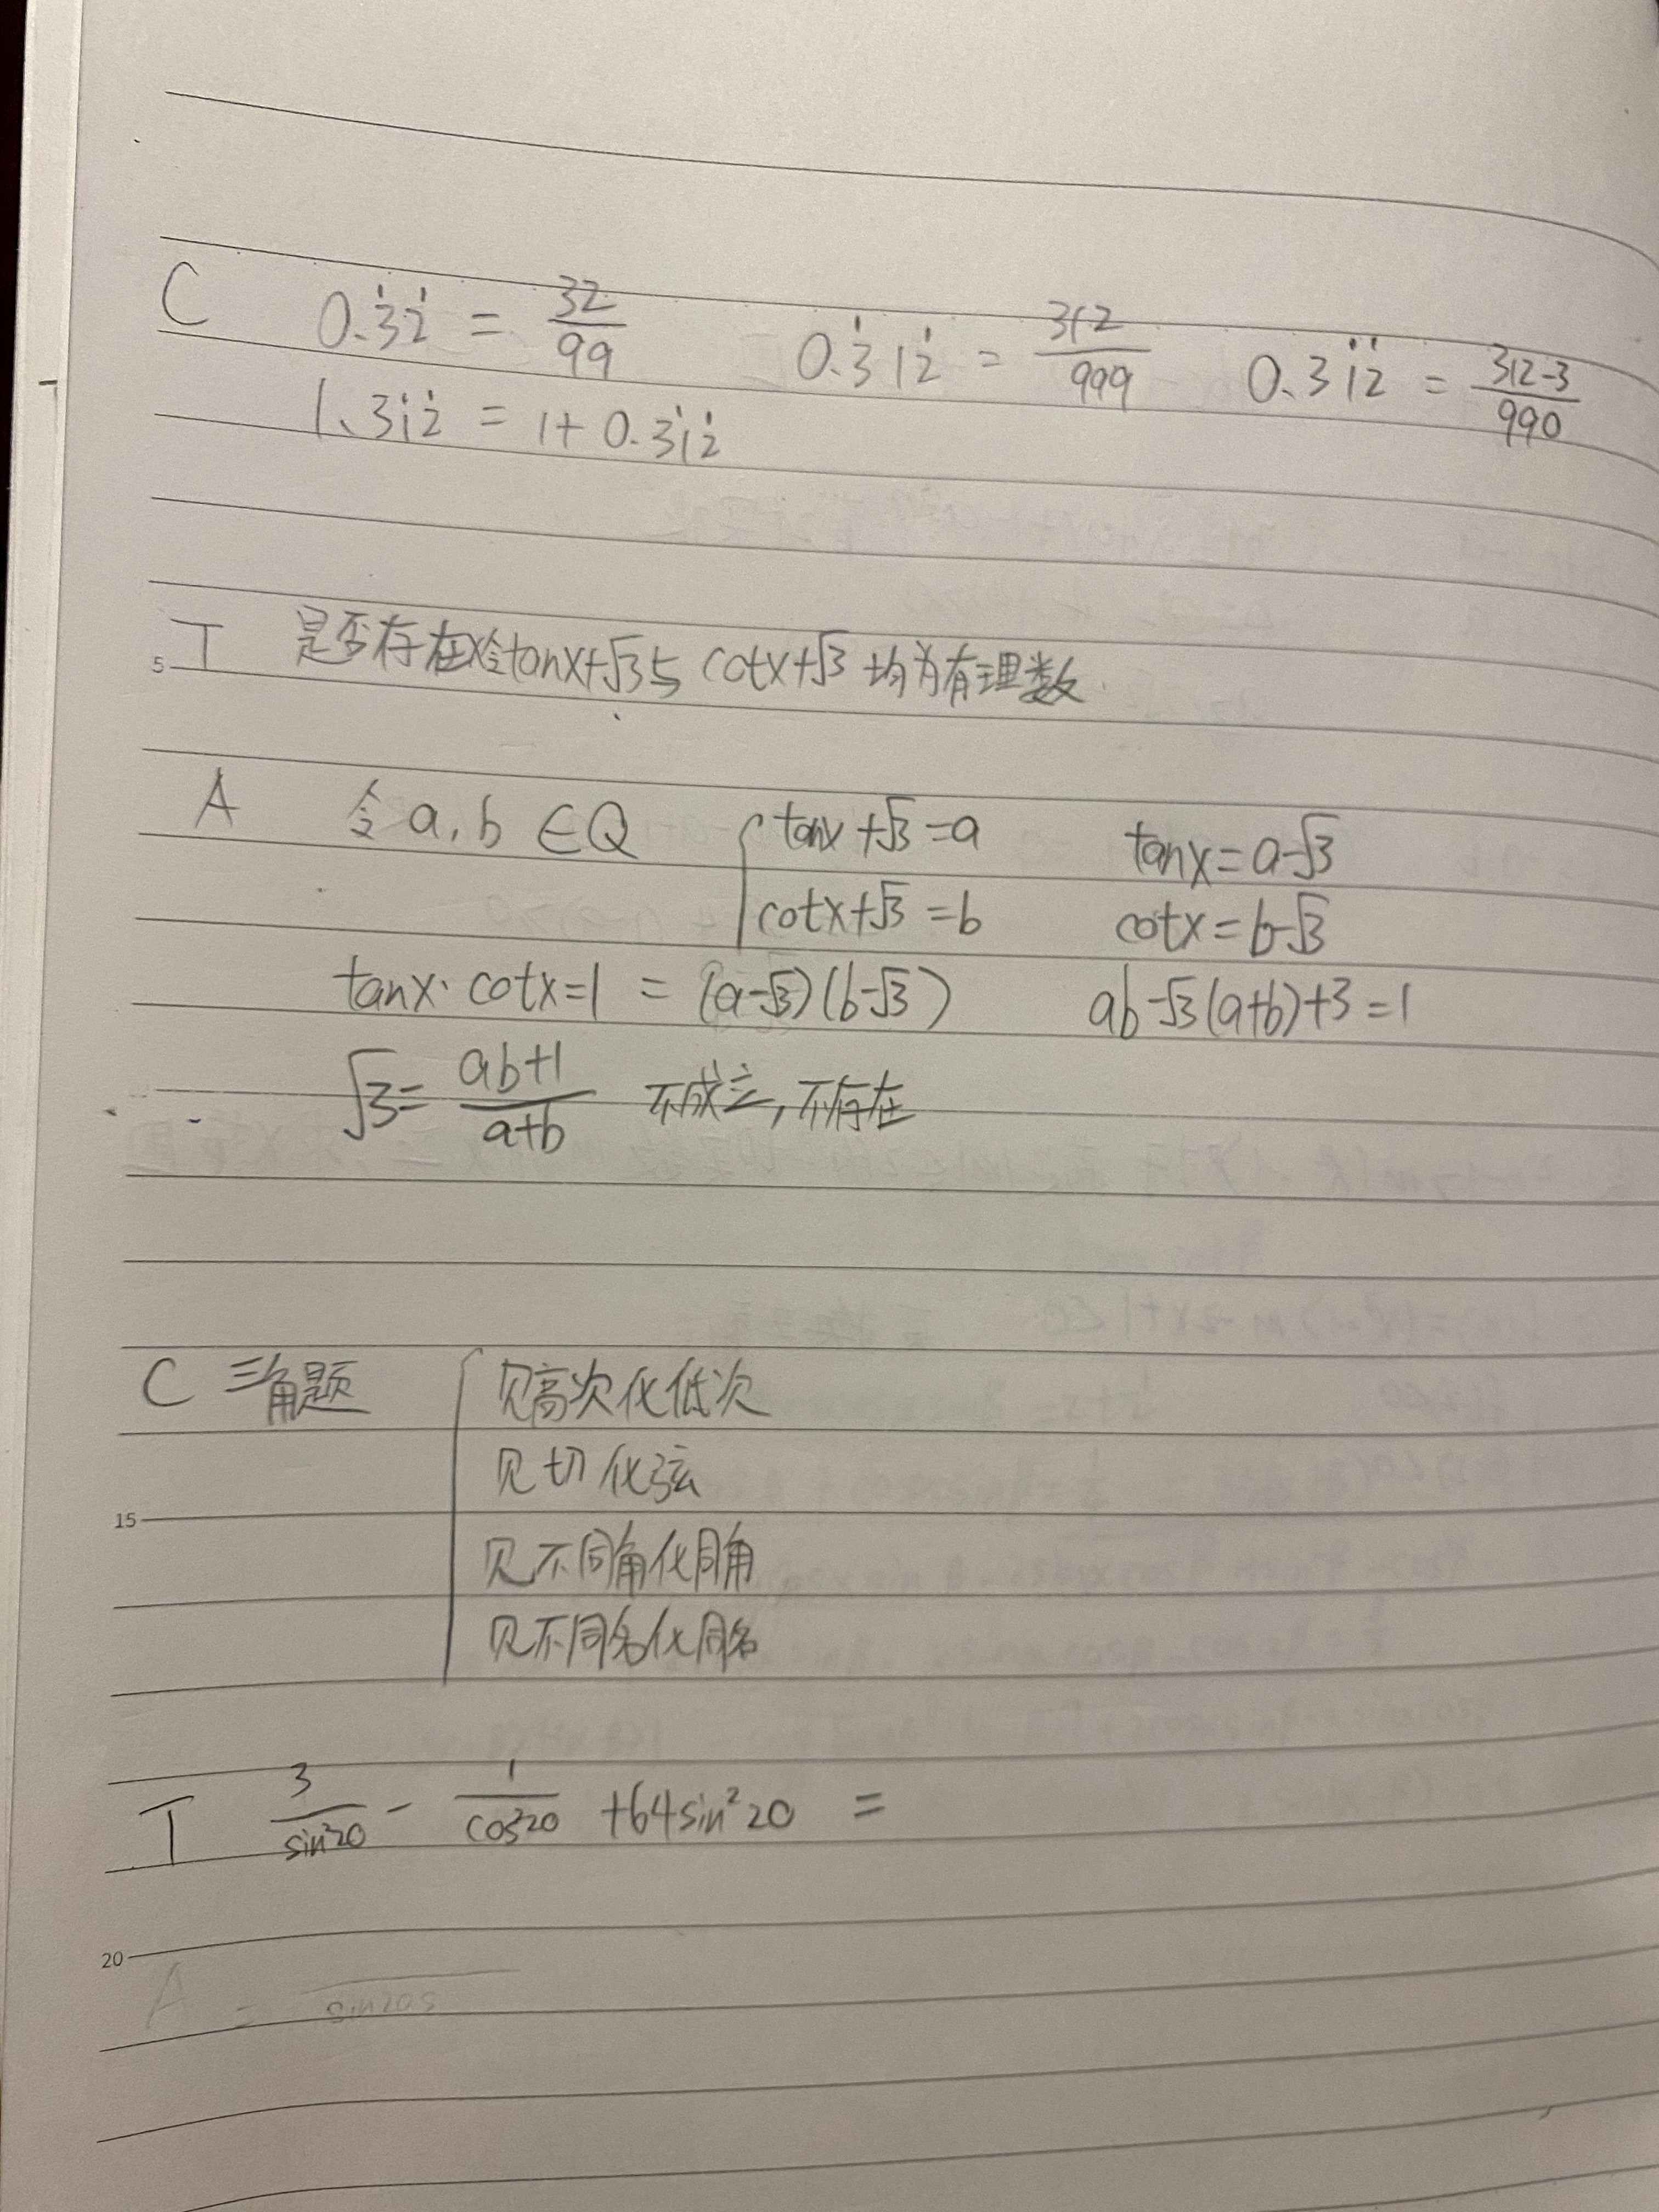 C 0.3̇2̇ = 32/99 0.3̇12̇ = 312/999 0.31̇2̇ = 312-3/990
1、31̇2̇ = 1+ 0.31̇2̇
5 T 是否存在x令tanx+√3与 cotx+√3 均为有理数
A 令 a, b ∈Q { tanx +√3 =a tanx= a-√3
cotx+√3 =b cotx = b-√3
tanx· cotx=1 = (a-√3)(b-√3) ab-√3(a+b)+3 =1
√3= ab+1/a+b 不成立, 不存在
C 三角题 { 见高次化低次
见切化弦
15
见不同角化同角
见不同名化同名
T 3/sin²20 - 1/cos²20 +64sin²20 =
20
A = sin20